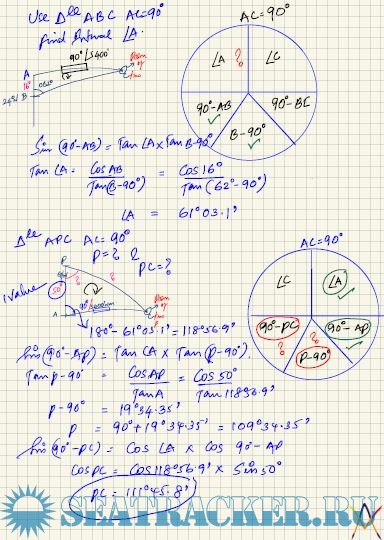 Use Δle ABC AC=90°
find Interval ∠A.
AC = 90°
90° / 5400'
A
16°
24°N B
062°
∠A ? ∠C
90°-AB 90°-BC
B-90°
Sin (90°-AB) = Tan ∠A x Tan B-90°
Tan ∠A = Cos AB / Tan(B-90°) = Cos 16° / Tan (62°-90°)
∠A = 61°03.1'
Δle APC AC = 90°
P = ?
PC = ?
AC = 90°
P
50°
A
∠C ∠A
90°-PC 90°-AP
? ?
P-90°
180° - 61°03.1' = 118°56.9'
Sin (90°-AP) = Tan CA x Tan (P-90°).
Tan p-90° = Cos AP / Tan A = Cos 50° / Tan 118°56.9'
P-90° = 19°34.35'
P = 90° + 19°34.35' = 109°34.35'
Sin (90°-PC) = Cos ∠A x Cos 90°-AP
Cos PC = Cos 118°56.9' x Sin 50°
PC = 111°45.8'
SEATRACKER.RU